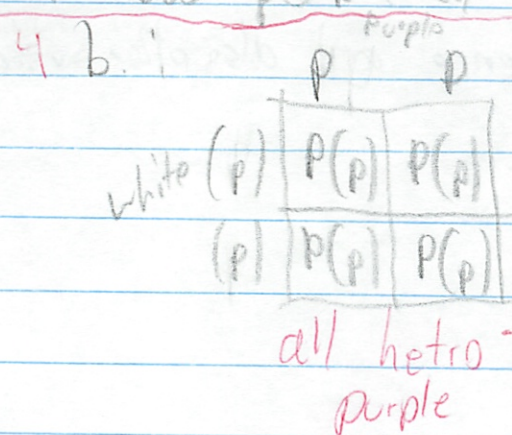 purple
4 b.
P P
white (p) P(p) P(p)
(p) P(p) P(p)
all hetro -
purple